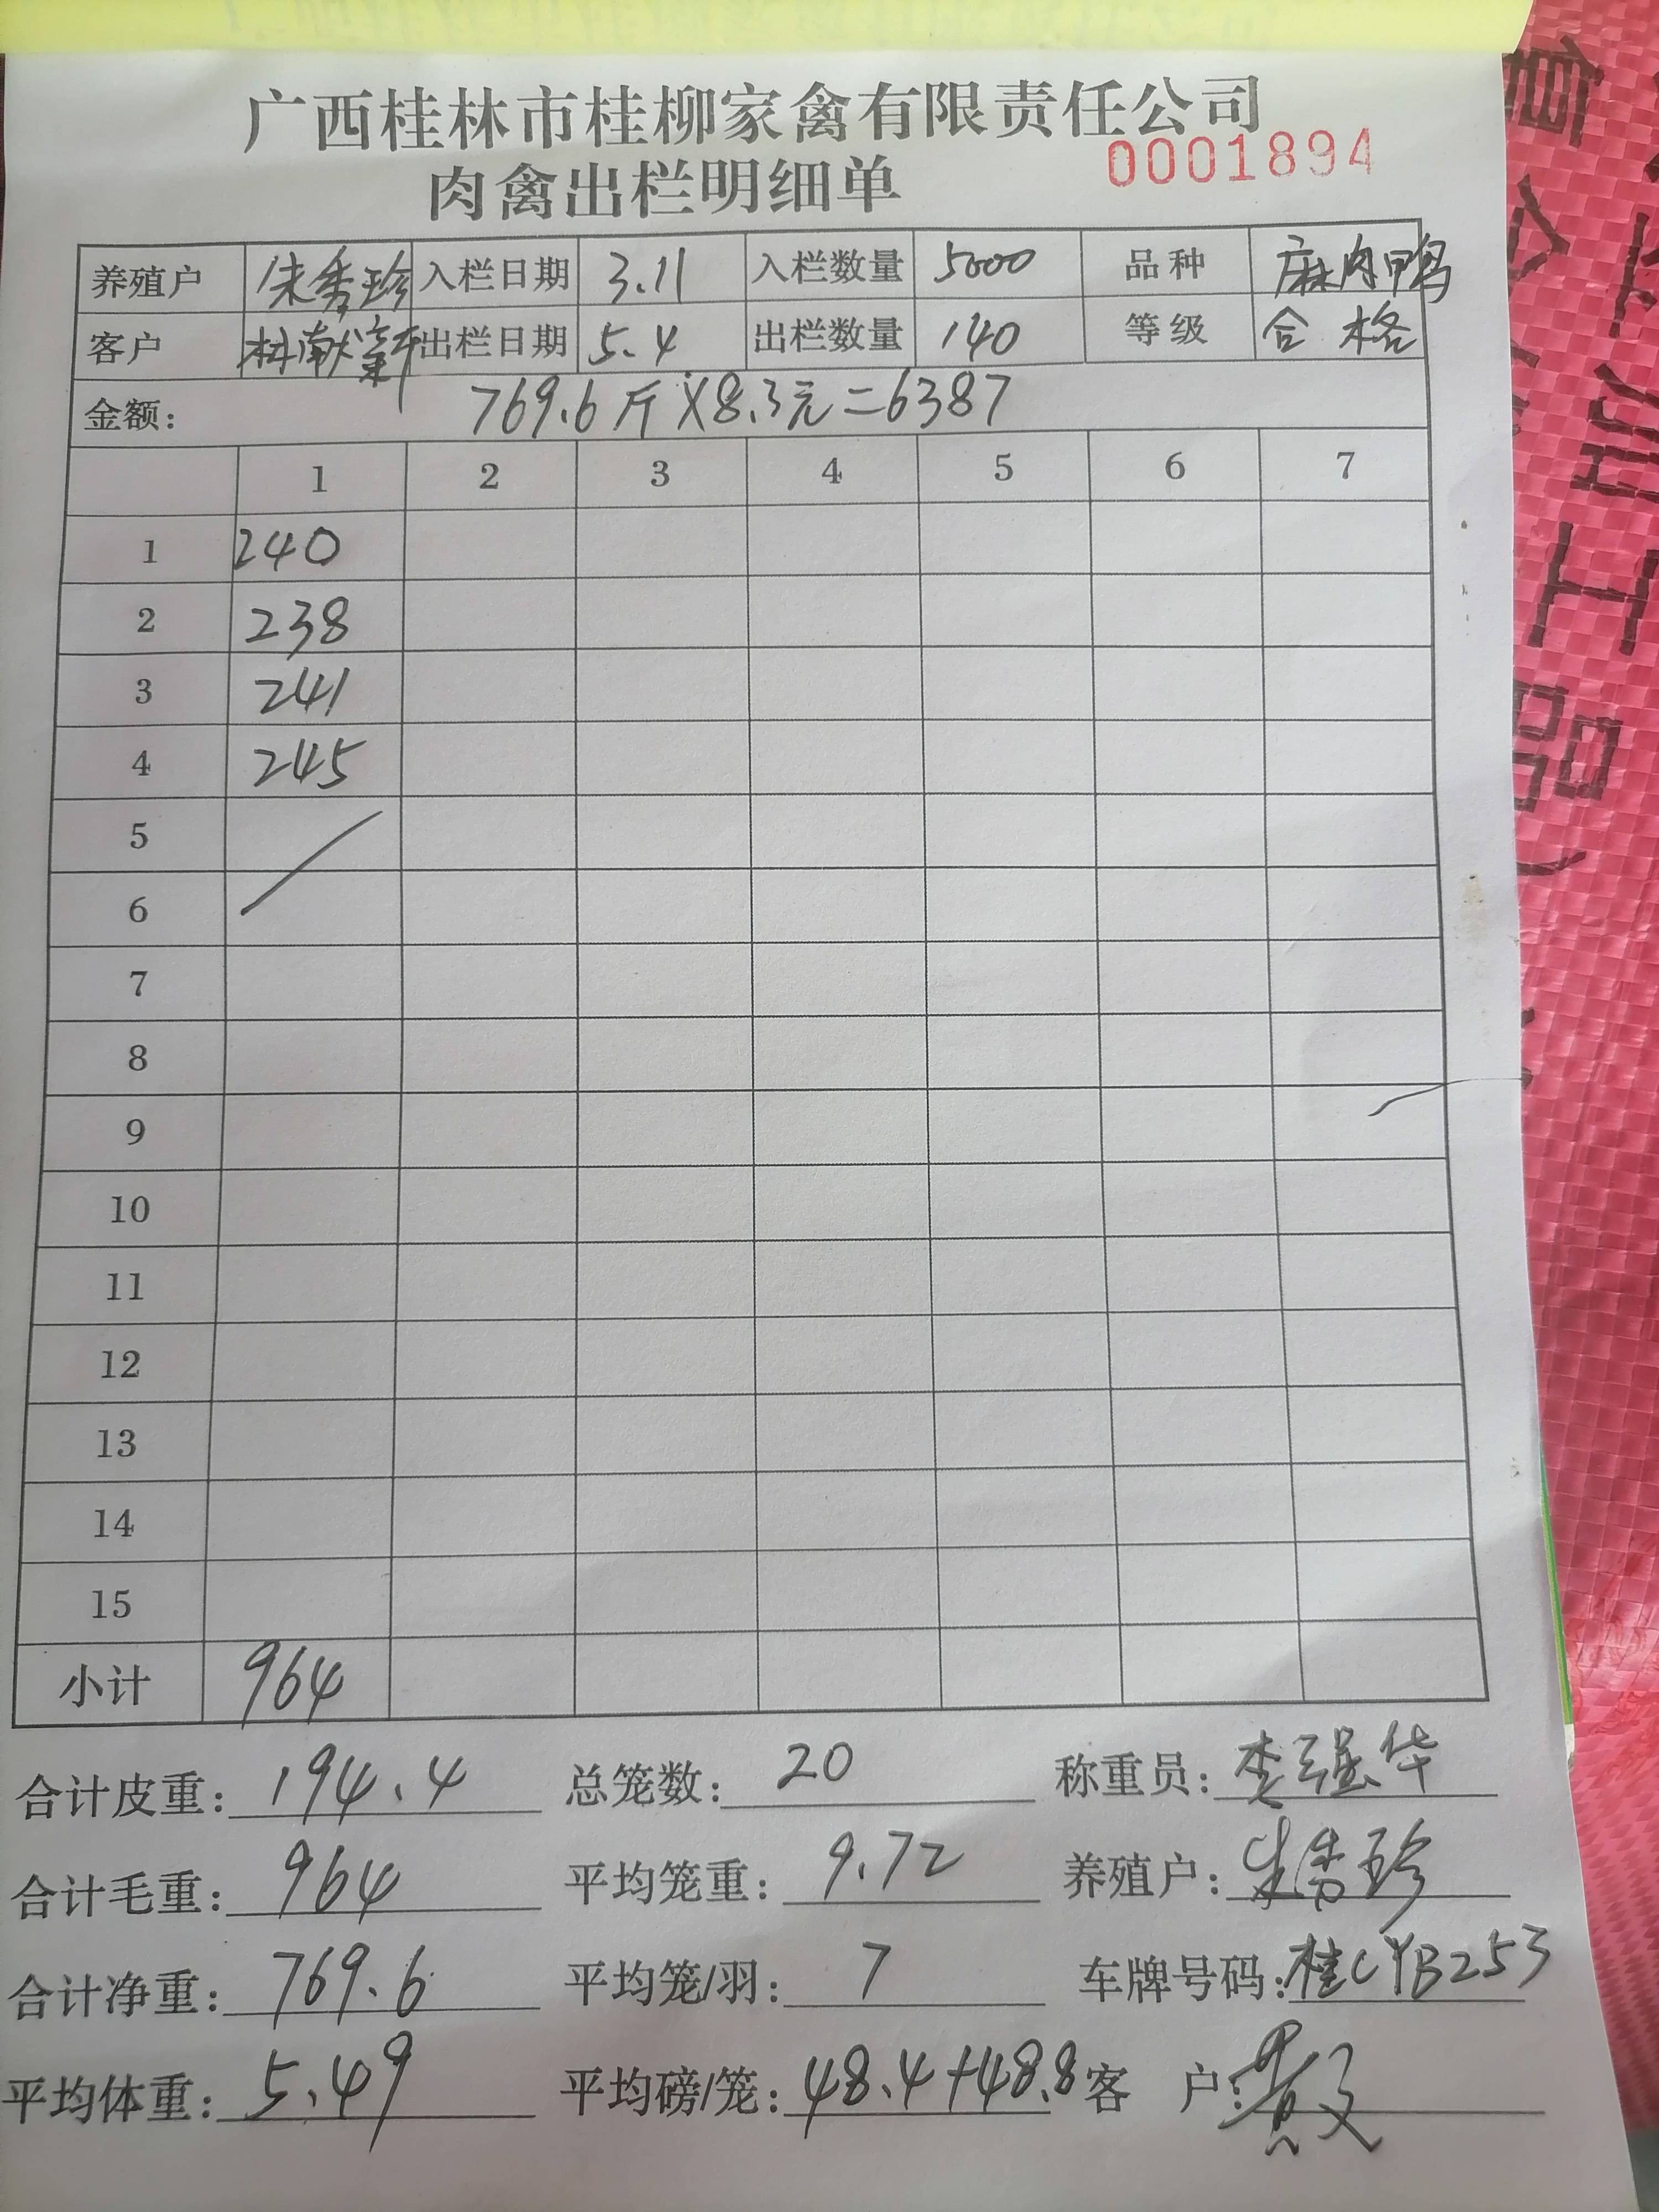 广西桂林市桂柳家禽有限责任公司
肉禽出栏明细单 0001894
养殖户 朱秀珍 入栏日期 3.11 入栏数量 5000 品种 麻肉鸭
客户 出栏日期 5.4 出栏数量 140 等级 合格
金额: 769.6斤×8.3元=6387
1 2 3 4 5 6 7
1 240
2 238
3 241
4 245
5
6
7
8
9
10
11
12
13
14
15
小计 964
合计皮重: 194.4 总笼数: 20 称重员: 李强华
合计毛重: 964 平均笼重: 9.72 养殖户: 朱秀珍
合计净重: 769.6 平均笼/羽: 7 车牌号码: 桂CYB253
平均体重: 5.49 平均磅/笼: 48.4+48.8 客户: